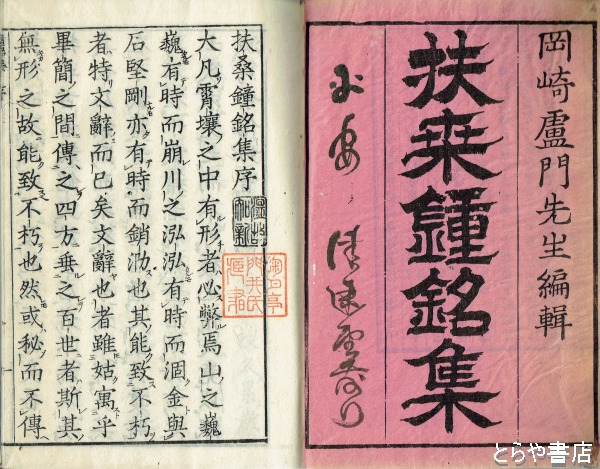 岡崎盧門先生編輯
扶桑鐘銘集
扶桑鐘銘集序
大凡霄壤之中有形者必弊焉山之巍
巍有時而崩川之泓泓有時而涸金與
石堅剛亦有時而銷泐也其能致不朽
者特文辭而已矣文辭也者雖姑寓乎
畢簡之間傳之四方垂之百世者斯其
無形之故能致不朽也然或秘而不傳
とらや書店